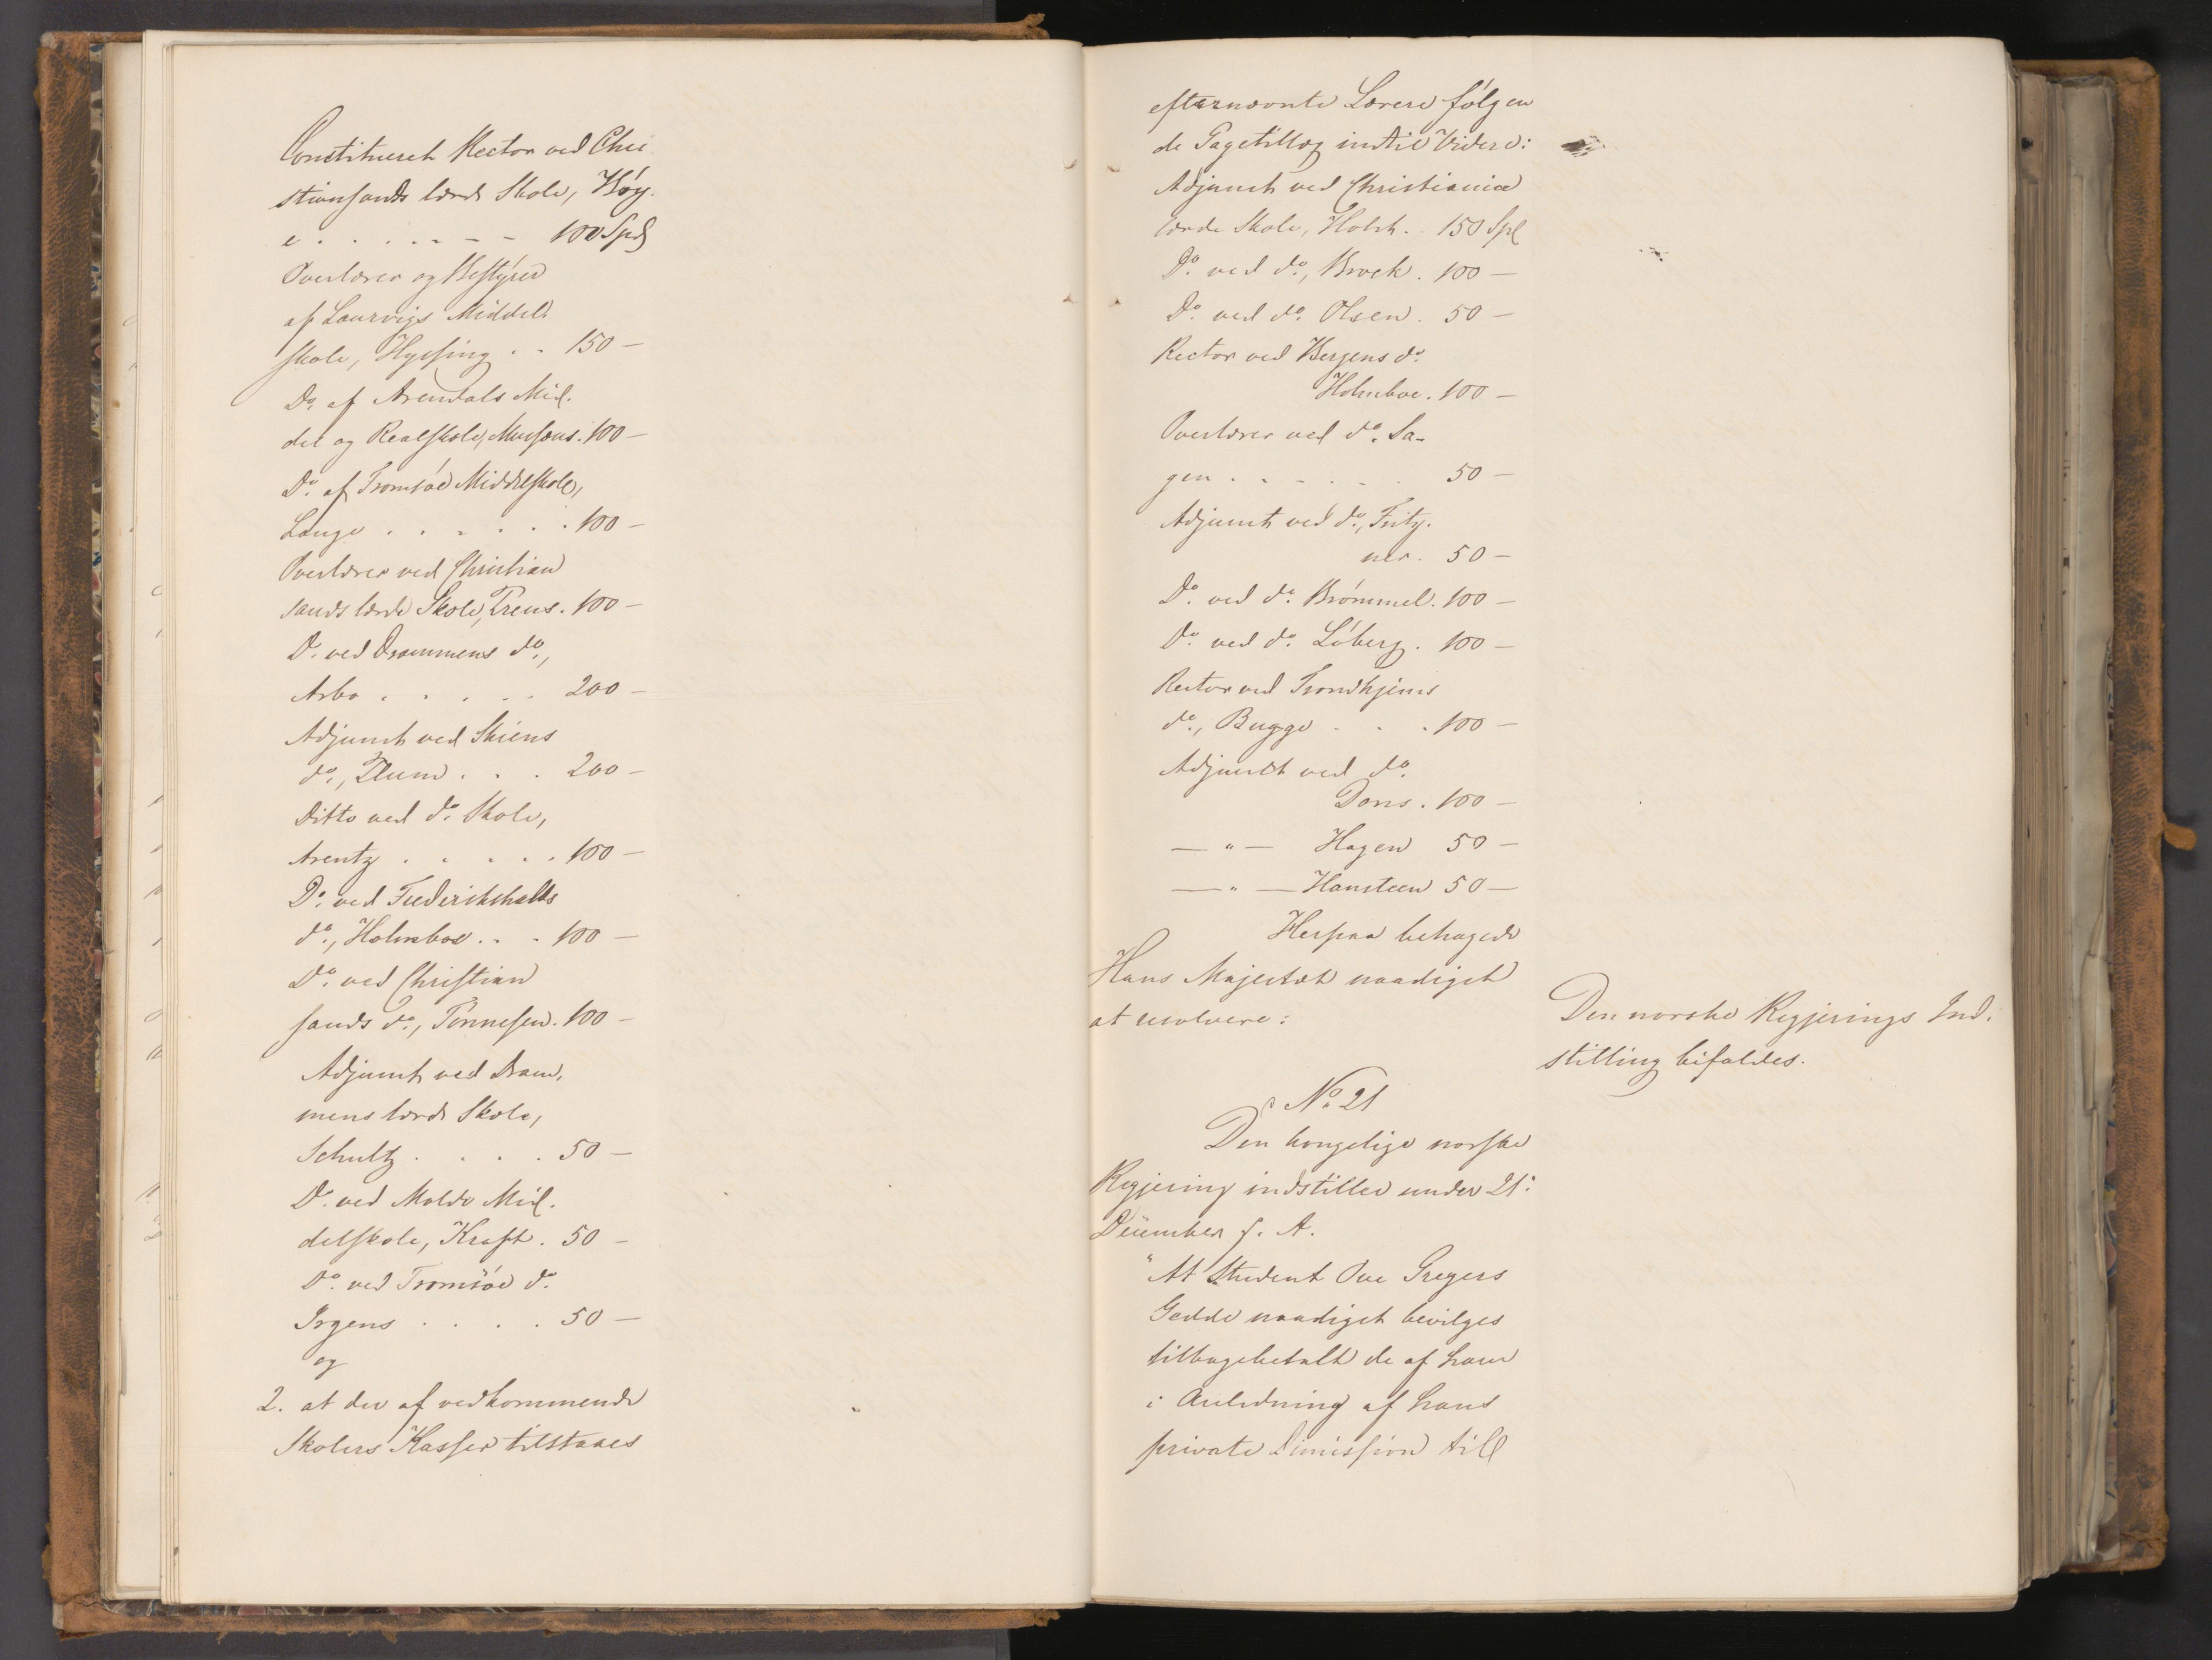 Constitueret Rector ved Chri
stiansands lærde Skole, Høy-
e . . . . . . . 100 Spd
Overlærer og Bestyrer
af Laurvigs Middel-
skole, Hysing . . 150 —
Do. af Arendals Mid-
del og Realskole, 100 —
Do. af Tromsøe Middelskole,
Lange . . . . . . 100 —
Overlærer ved Christian
sands lærde Skole, 100 —
Do. ved Drammens do.,
Arbo . . . . . 200 —
Adjunct ved Skiens
do., Blum . . . 200 —
Ditto ved do. Skole,
Arentz . . . . . 100 —
Do. ved Frederikshalds
do., Holmboe . . . 100 —
Do. ved Christian
sands do., Tønnesen. 100 —
Adjunct ved Dram-
mens lærde Skole,
Schultz . . . . 50 —
Do. ved Molde Mid-
delskole, Kraft. 50 —
Do. ved Tromsöe do.
Irgens . . . . 50 —
og
2. at der af vedkommende
Skolers Kasser tilstaaes
efternævnte Lærere følgen
de Gagetillæg indtil Videre:
Adjunct ved Christiania
lærde Skole, Holst. . 150 Spd
Do. ved do., Broch. 100 —
Do. ved do. Olsen. 50 —
Rector ved Bergens do.
Holmboe. 100 —
Overlærer ved do. Sa-
gen . . . . . . 50 —
Adjunct ved do., Fritz-
ner. 50 —
Do. ved do. Brømmel. 100 —
Do. ved do. Løberg. 100 —
Rector ved Trondhjems
do., Bugge . . . 100 —
Adjunct ved do.
Dons. 100 —
— " — Hagen 50 —
— " — Hansteen 50 —
Herpaa behagede
Hans Majestæt naadigst
at resolvere:
Den norske Regjerings Ind-
stilling bifaldes.
No. 21
Den kongelige norske
Regjering indstiller under 21.
December f. A.
"At Student Ove Gregers
Gedde naadigst bevilges
tilbagebetalt de af ham
i Anledning af hans
private Dimission till